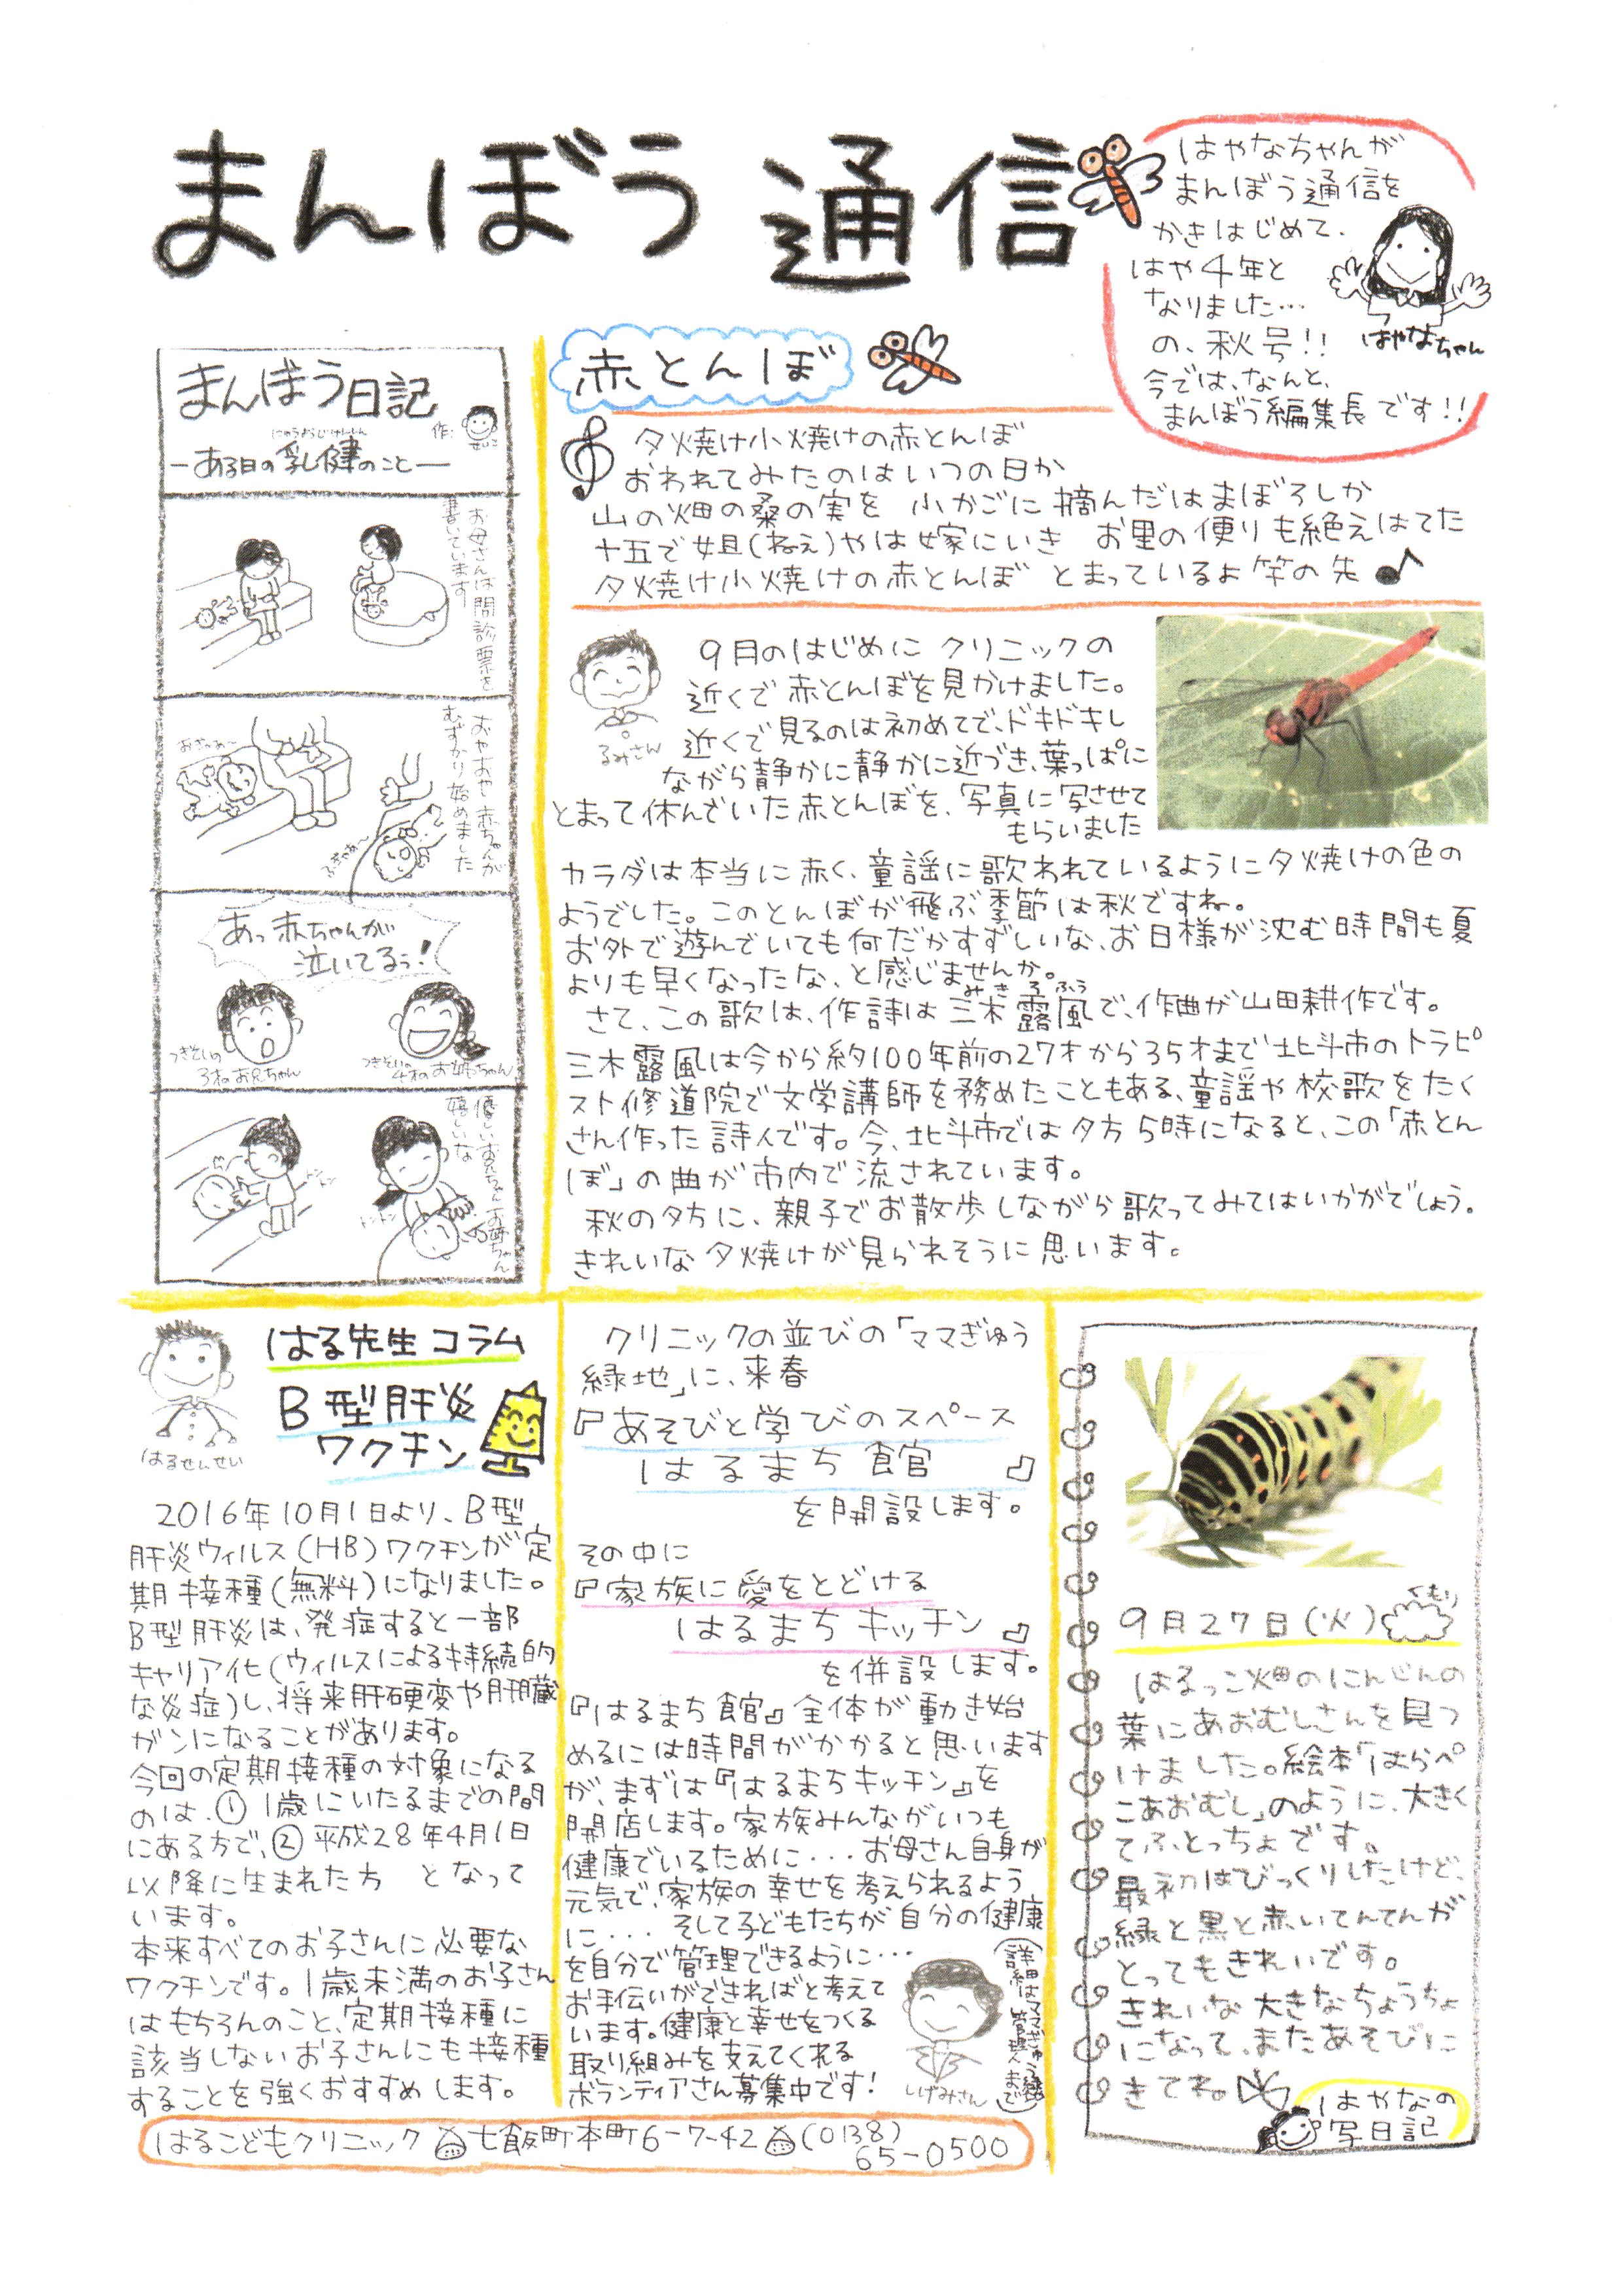 まんぼう通信
はやなちゃんが
まんぼう通信を
かきはじめて、
はや4年と
なりました…
の、秋号!!
今では、なんと、
まんぼう編集長です!!
はやなちゃん
まんぼう日記
作:
にゅうようじけんしん
－ある日の乳健のこと－
お母さんは問診票を
書いています
おやおや 赤ちゃんが
むずかり始めました
おぎゃあ〜
ふぎゃあ〜
あっ赤ちゃんが
泣いてるぅ!
つきそいの
3才のお兄ちゃん
つきそいの
4才のお姉ちゃん
優しいお兄ちゃんとお姉ちゃん
嬉しいな
トントン
トントン
赤とんぼ
夕焼け小焼けの赤とんぼ
おわれてみたのはいつの日か
山の畑の桑の実を 小かごに摘んだはまぼろしか
十五で姐(ねえ)やは嫁にいき お里の便りも絶えはてた
夕焼け小焼けの赤とんぼ とまっているよ竿の先
るみさん
9月のはじめに クリニックの
近くで赤とんぼを見かけました。
近くで見るのは初めてで、ドキドキし
ながら静かに静かに近づき、葉っぱに
とまって休んでいた赤とんぼを、写真に写させて
もらいました
カラダは本当に赤く、童謡に歌われているように夕焼けの色の
ようでした。このとんぼが飛ぶ季節は秋ですね。
お外で遊んでいても何だかすずしいな、お日様が沈む時間も夏
よりも早くなったな、と感じませんか。
みき ろふう
さて、この歌は、作詩は三木露風で、作曲が山田耕作です。
三木露風は今から約100年前の27才から35才まで北斗市のトラピ
スト修道院で文学講師を務めたこともある、童謡や校歌をたく
さん作った詩人です。今、北斗市では夕方5時になると、この「赤とん
ぼ」の曲が市内で流されています。
秋の夕方に、親子でお散歩しながら歌ってみてはいかがでしょう。
きれいな夕焼けが見られそうに思います。
はるせんせい
はる先生コラム
B型肝炎
ワクチン
2016年10月1日より、B型
肝炎ウィルス(HB)ワクチンが定
期接種(無料)になりました。
B型肝炎は、発症すると一部
キャリア化(ウィルスによる持続的
な炎症)し、将来肝硬変や肝臓
ガンになることがあります。
今回の定期接種の対象になる
のは、①1歳にいたるまでの間
にある方で、②平成28年4月1日
以降に生まれた方 となって
います。
本来すべてのお子さんに必要な
ワクチンです。1歳未満のお子さん
はもちろんのこと、定期接種に
該当しないお子さんにも接種
することを強くおすすめします。
クリニックの並びの「ママぎゅう
緑地」に、来春
『あそびと学びのスペース
はるまち館 』
を開設します。
その中に
『家族に愛をとどける
はるまちキッチン』
を併設します。
『はるまち館』全体が動き始
めるには時間がかかると思います
が、まずは『はるまちキッチン』を
開店します。家族みんながいつも
健康でいるために...お母さん自身が
元気で、家族の幸せを考えられるよう
に... そして子どもたちが自分の健康
を自分で管理できるように...
お手伝いができればと考えて
います。健康と幸せをつくる
取り組みを支えてくれる
ボランティアさん募集中です!
しげみさん
(詳細はママぎゅう緑地
管理人まで)
9月27日(火)
くもり
はるっこ畑のにんじんの
葉にあおむしさんを見つ
けました。絵本「はらぺ
こあおむし」のように、大きく
てふとっちょです。
最初はびっくりしたけど、
緑と黒と赤いてんてんが
とってもきれいです。
きれいな大きなちょうちょ
になって、またあそびに
きてね。
はやなの
写日記
はるこどもクリニック 七飯町本町6-7-42 (0138)
65-0500